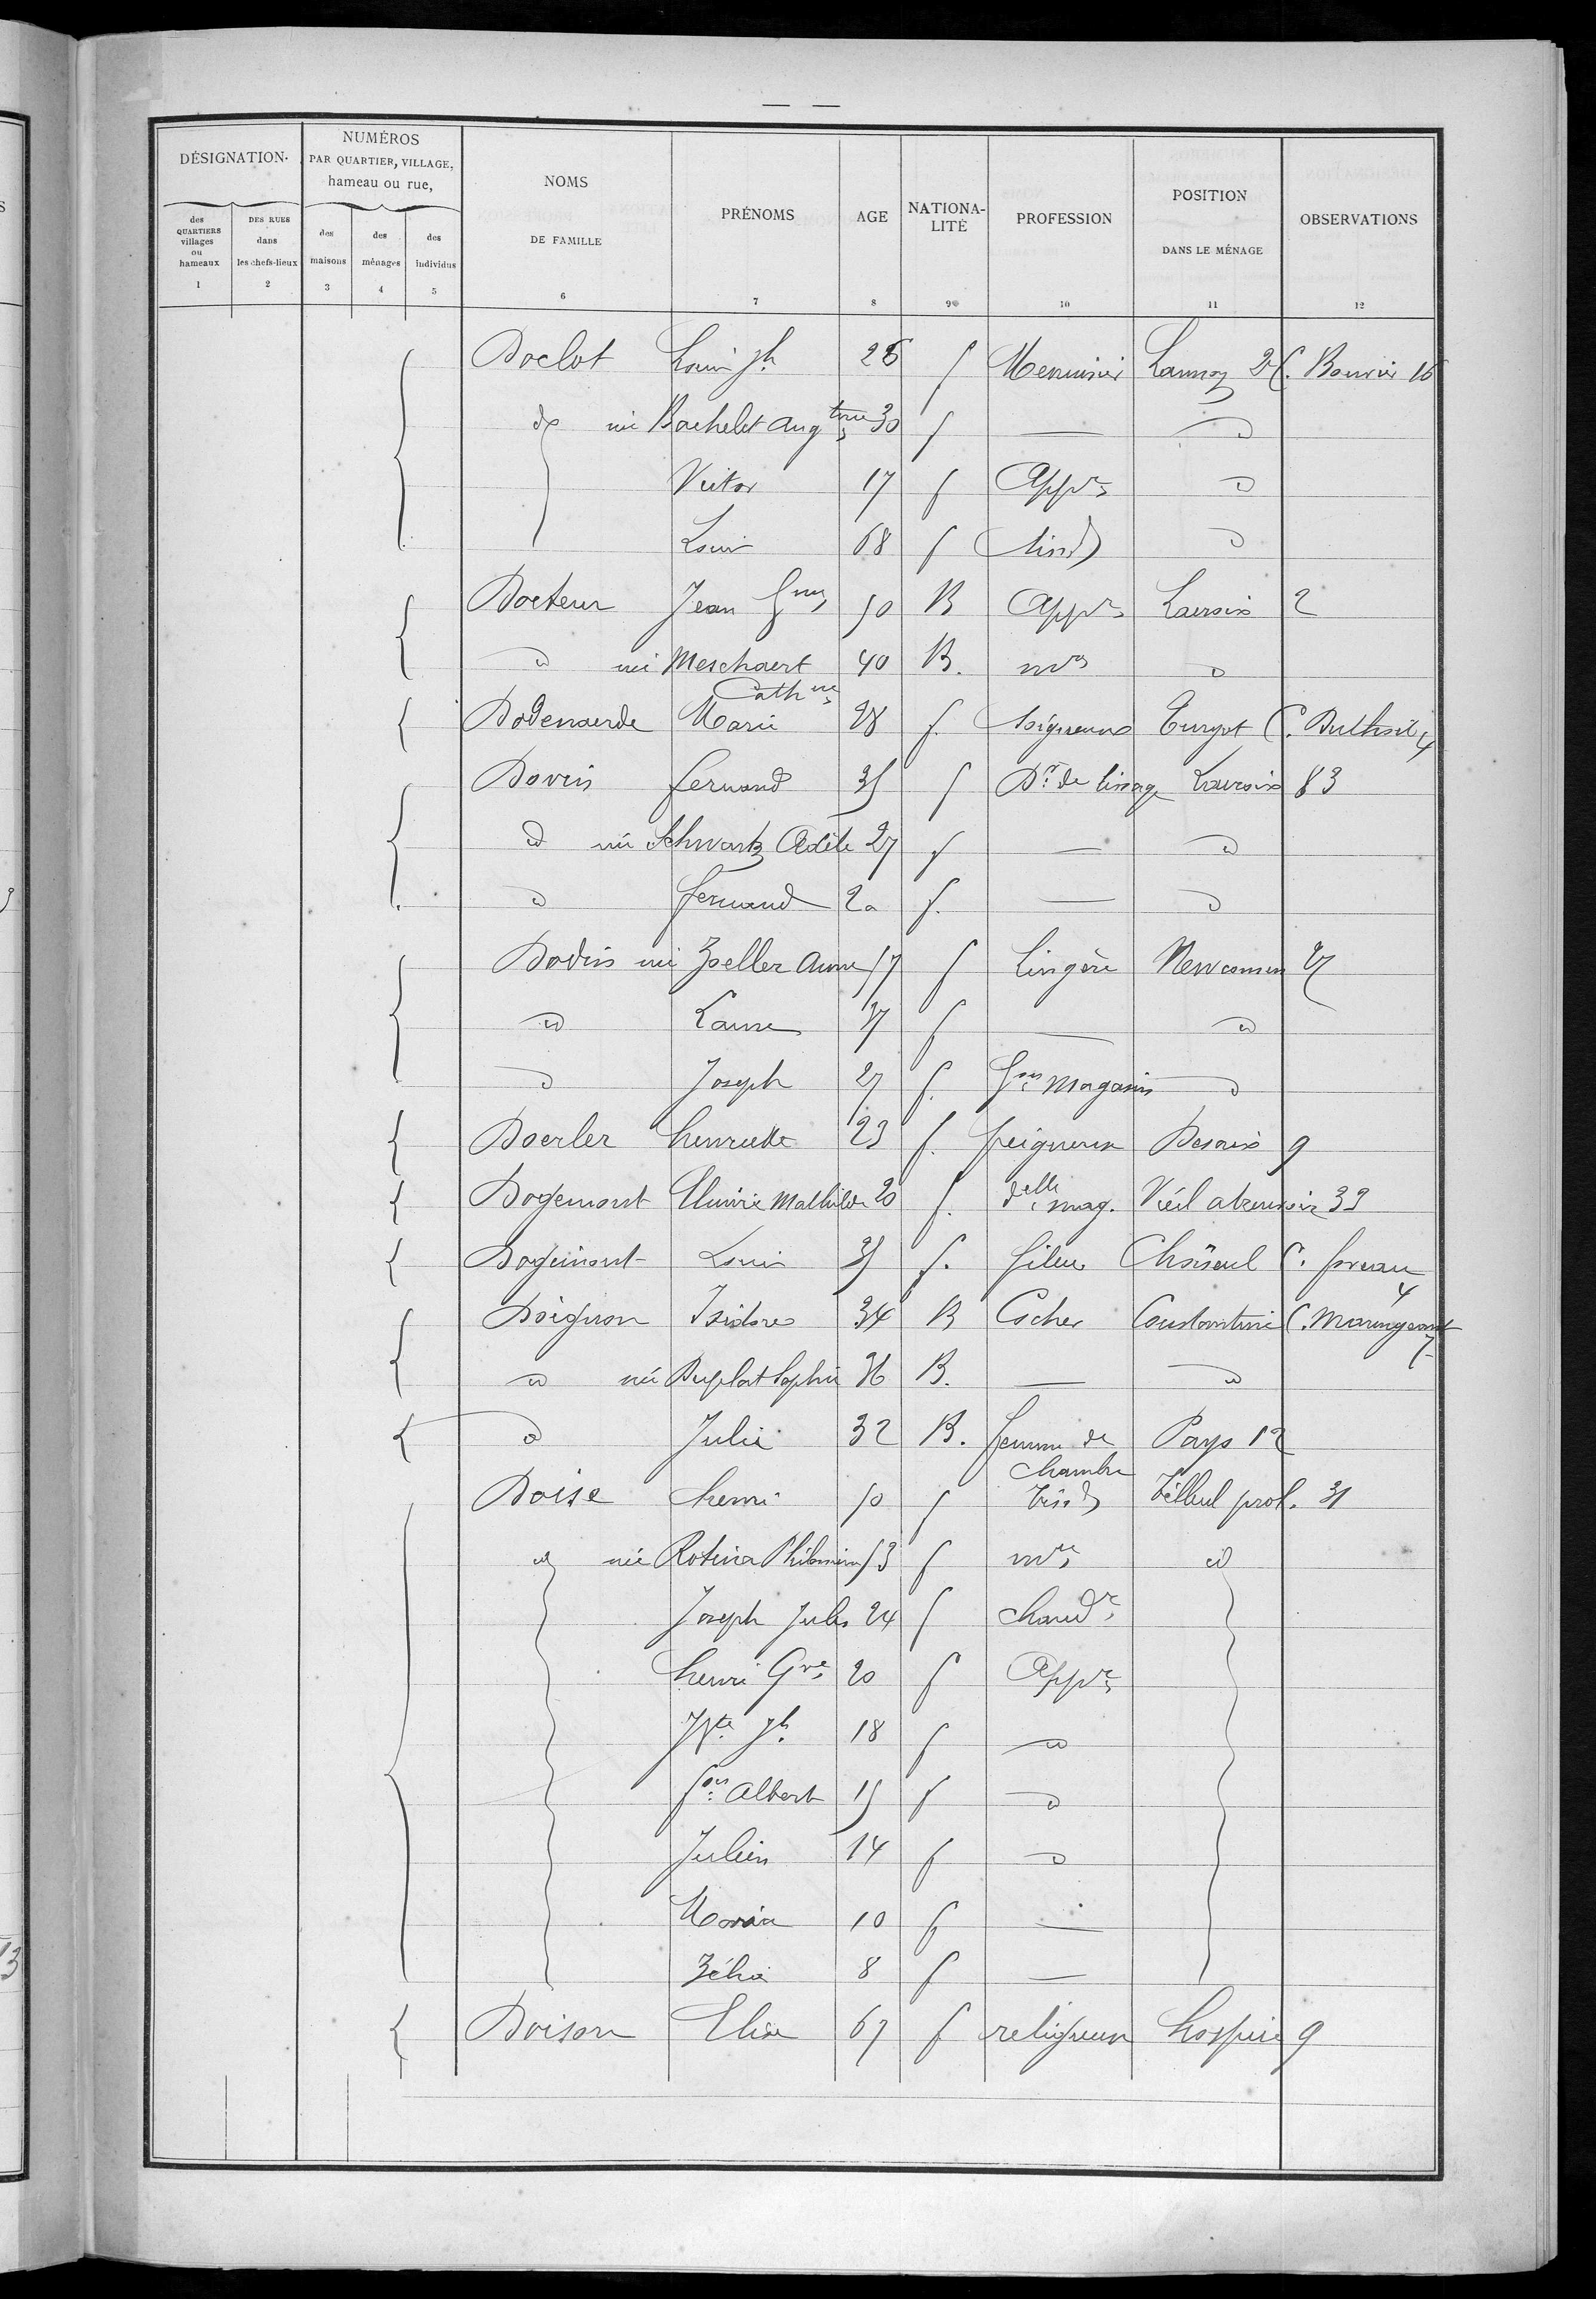 DÉSIGNATION
NUMÉROS
PAR QUARTIER, VILLAGE,
hameau ou rue,
des QUARTIERS villages ou hameaux 1
DES RUES dans les chefs-lieux 2
des maisons 3
des ménages 4
des individus 5
NOMS DE FAMILLE 6
PRÉNOMS 7
AGE 8
NATIONALITÉ 9
PROFESSION 10
POSITION DANS LE MÉNAGE 11
OBSERVATIONS 12
Doclot Louis Jh 26 f Menuisier Lannoy C. Bouvier 16
d née Bachelet Augtine 30 f — d
Victor 17 f Appr d
Louis 68 f tissd d
Docteur Jean 50 B Appr Lacroix 2
d née Meschaert Cathne 40 B. mre d
Dodenaerde Marie 28 f. Soigneuse Turgot C. Dulthoit 4
Dovin fernand 35 f Dr de tissage Lacroix 83
d née Schwartz Adèle 27 f — d
d fernand 2a f. — d
Dodin née Zoeller Anne 57 f Lingère Newcomen 27
d Laure 37 f — d
d Joseph 27 f. Gon Magasin d
Doerler henriette 23 f. peigneuse Desaix 9
Dogemont Elmire Mathilde 20 f. delle mag. Vieil abreuvoir 39
Dogimont Louis 35 f. fileur Choiseul C. foveau 4
Doignon Isidore 34 B Cocher Constantine C. Maringeant 7
d née Duplat Sophie 36 B. — d
d Julie 32 B. femme de chambre Pays 12
Doise henri 50 f tissd Tilleul prol. 31
d née Rotina Philomine 53 f mre d
Joseph Jules 24 f chaudr
henri Gve 20 f Appr
Jh 18 f d
fois Albert 15 f d
Julien 14 f d
Maria 10 f —
Zélia 8 f —
Doison Elise 67 f religieuse hospice 9